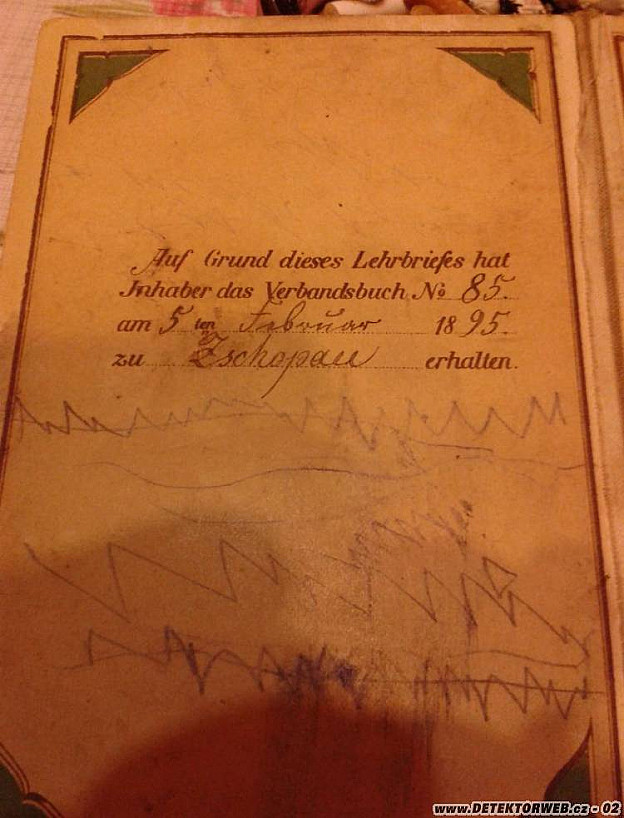 Auf Grund dieses Lehrbriefes hat
Inhaber das Verbandsbuch No 85.
am 5ten Februar 1895.
zu Zschopau erhalten.
www.DETEKTORWEB.cz - 02